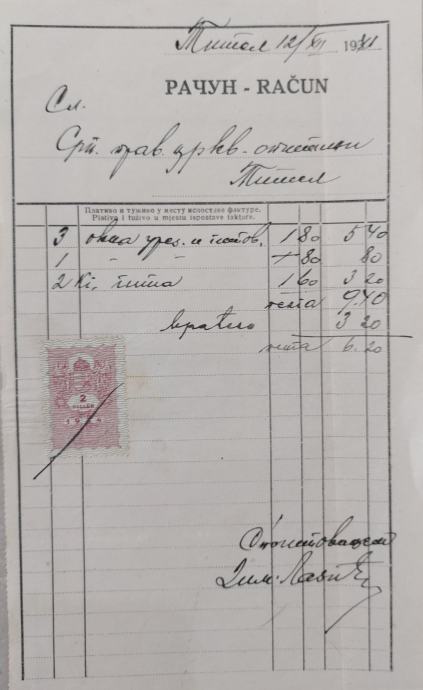 Тител 12/XI 1941
РАЧУН - RAČUN
Сл.
Срп. прав. цркв. општини
Тител
Плативо и туживо у месту испоставе фактуре.
Plativo i tuživo u mjestu ispostave fakture.
3 окна урез. и китов. 1 80 5 40
1 " " " 80 80
2 Kg. кита 1 60 3 20
9.40
вратио 3 20
6.20
2
FILLÉR
С поштовањем